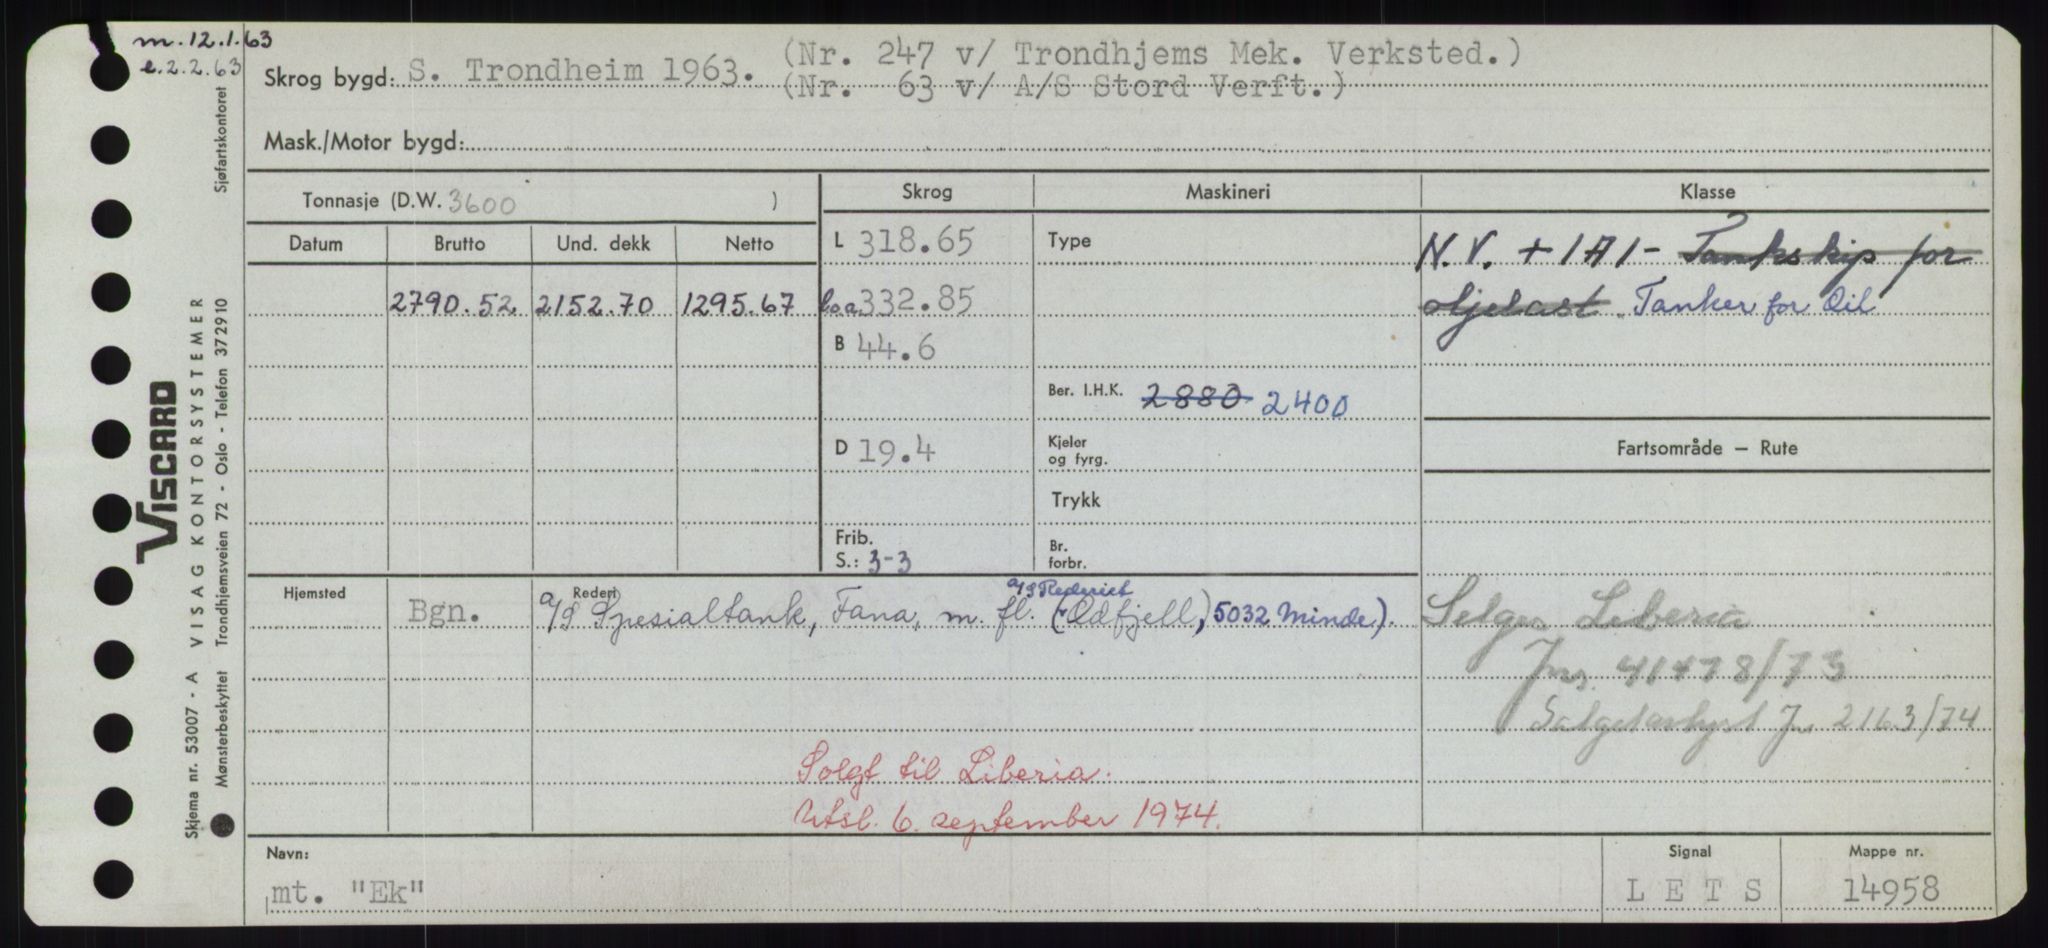 m. 12.1.63
e. 2.2.63
Skrog bygd: S. Trondheim 1963. (Nr. 247 v/ Trondhjems Mek. Verksted.)
(Nr. 63 v/ A/S Stord Verft.)
Mask./Motor bygd:
Tonnasje (D.W. 3600 )
Skrog
Maskineri
Klasse
Datum
Brutto
Und. dekk
Netto
L 318.65
Type
N.V. + 1A1 - Tankskip for
2790.52 2152.70 1295.67
l.o.a 332.85
oljelast. Tanker for Oil
B 44.6
Ber. I.H.K. 2880 2400
D 19.4
Kjeler
og fyrg.
Fartsområde — Rute
Trykk
Frib.
S.: 3-3
Br.
forbr.
Hjemsted
Bgn.
Rederi
A/S Rederiet
A/S Spesialtank, Fana, m. fl. (Odfjell, 5032 Minde).
Selges Liberia
Jnr. 41478/73
Jn 2163/74
Solgt til Liberia.
Utsl. 6. september 1974.
Navn:
mt. "Ek"
Signal
L E T S
Mappe nr.
14958
VISCARD
Skjema nr. 53007 - A VISAG KONTORSYSTEMER
Mønsterbeskyttet Trondhjemsveien 72 - Oslo - Telefon 372910 Sjøfartskontoret